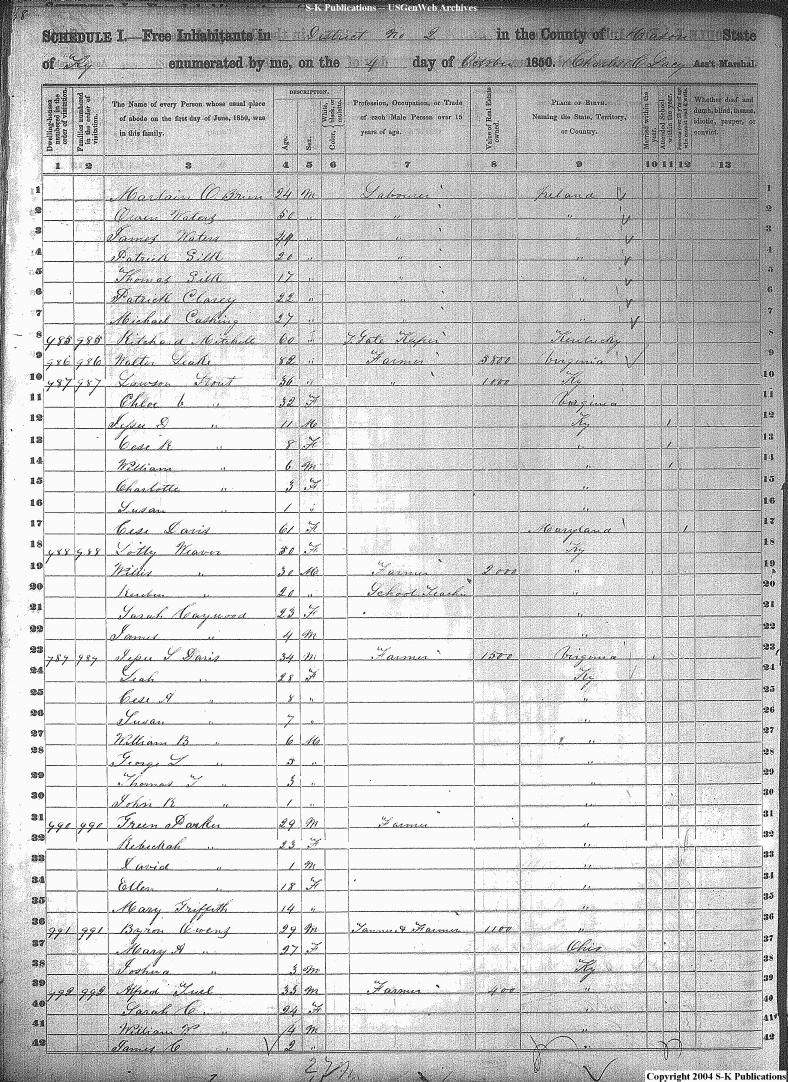 S-K Publications – USGenWeb Archives
SCHEDULE I.—Free Inhabitants in District No 2 in the County of Mason State
of Ky enumerated by me, on the 4 day of October 1850. Charles C Lacy Ass't Marshal.
Dwelling-houses numbered in the order of visitation.
Families numbered in the order of visitation.
The Name of every Person whose usual place of abode on the first day of June, 1850, was in this family.
DESCRIPTION.
Age.
Sex.
Color, White, black, or mulatto.
Profession, Occupation, or Trade of each Male Person over 15 years of age.
Value of Real Estate owned.
PLACE OF BIRTH. Naming the State, Territory, or Country.
Married within the year.
Attended School within the year.
Whether deaf and dumb, blind, insane, idiotic, pauper, or convict.
1 2 3 4 5 6 7 8 9 10 11 12 13
1 O Brien 24 M Labourer Ireland 1
2 Owen Waters 50 " " " 2
3 James Waters 49 " " " 3
4 Patrick Silk 20 " " " 4
5 Thomas Silk 17 " " " 5
6 Patrick Clarey 22 " " " 6
7 Michael Cushing 27 " " " 7
8 985 985 Ritchard Mitchell 60 " T Gate Keeper Kentucky 8
9 986 986 Walter Leake 82 " Farmer 5800 Virginia 9
10 987 987 Lawson Trout 36 " " 1000 Ky 10
11 Chloe " 32 F Virginia 11
12 D " 11 M Ky 1 12
13 Cese R " 8 F " 1 13
14 William " 6 M " 1 14
15 Charlotte " 3 F " 15
16 Susan " 1 " " 16
17 Cese Davis 61 F Maryland 1 17
18 988 988 Weaver 50 F Ky 18
19 Willis " 30 M Farmer 2000 " 19
20 Reuben " 20 " School Teacher " 20
21 Sarah Haywood 23 F " 21
22 James " 4 M " 22
23 989 989 S Davis 34 M Farmer 1500 Virginia 23
24 Leah " 28 F Ky 24
25 Cese A " 8 " " 25
26 Susan " 7 " " 26
27 William B " 6 M " 27
28 George L " 5 " " 28
29 Thomas T " 3 " " 29
30 John R " 1 " " 30
31 990 990 Green Parker 29 M Farmer " 31
32 Rebeckah " 23 F " 32
33 David " 1 M " 33
34 Ellen " 18 F " 34
35 Mary Griffith 14 " " 35
36 991 991 Byron Owens 29 M Tanner & Farmer 1100 " 36
37 Mary A " 27 F Ohio 37
38 Joshua " 3 M Ky 38
39 992 992 Alfred Tuel 33 M Farmer 400 " 39
40 Sarah C " 24 F " 40
41 William " 4 M " 41
42 James C " 2 " " 42
Copyright 2004 S-K Publications